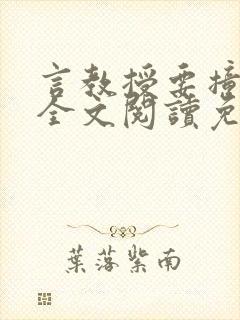 言教授要撞
全文閱讀免
葉落紫南